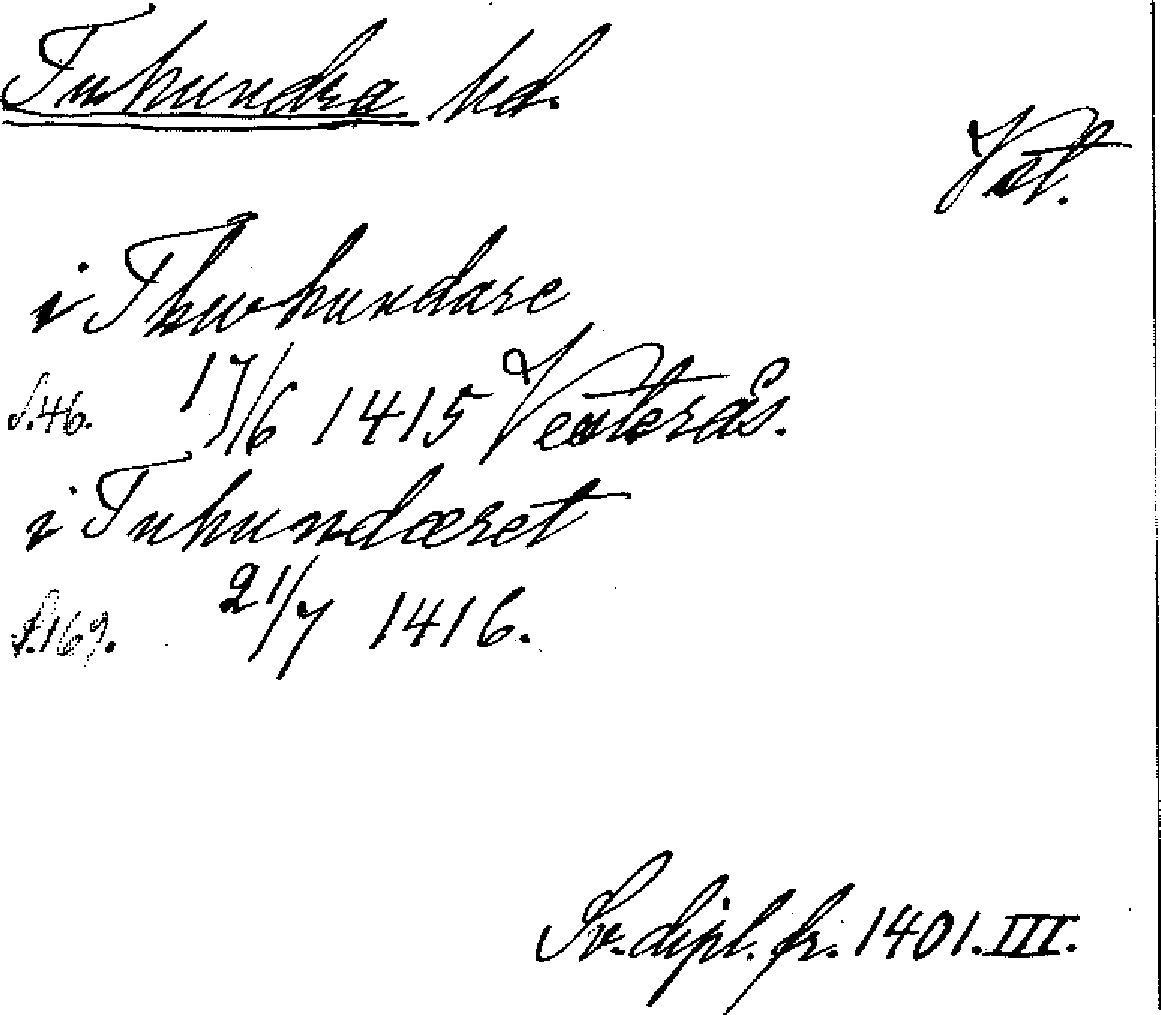 Tuhundra hd.
Vst.
i Thwhundare
S.46. 17/6 1415 Vesterås.
i Tuhundæret
S.169. 21/7 1416.
Sv. dipl. fr. 1401. III.